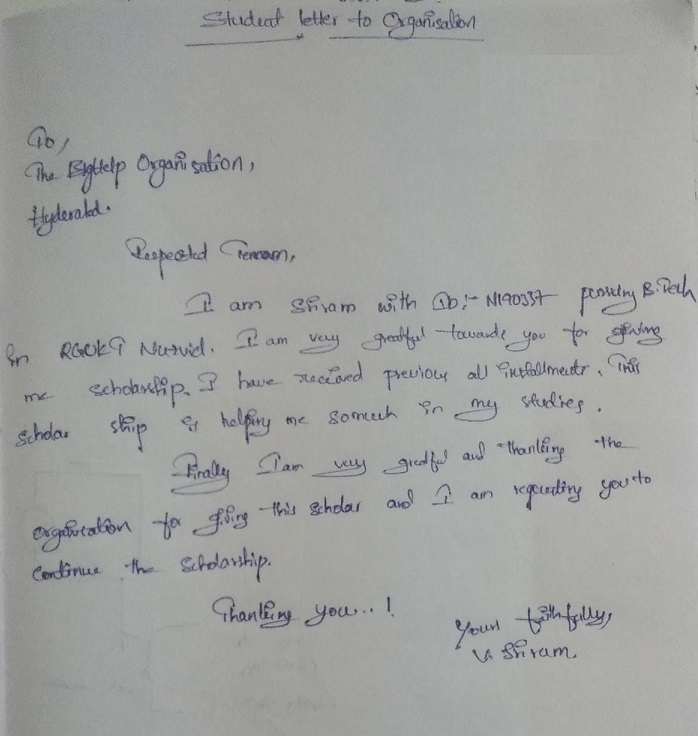 Student letter to Organisation
To,
The BigHelp Organisation,
Hyderabad.
Respected
I am Shiram with ID:- N190337 B.Tech
in RGUKT Nuzvid. I am very greatful towards you for giving
me scholarship. I have received previous all installments. This
scholar ship is helping me somuch in my studies.
Finally I am very greatful and thanking the
organisation for giving this scholar and I am requesting you to
continue the scholarship.
Thanking you...!
Yours faithfully,
V. Shiram.